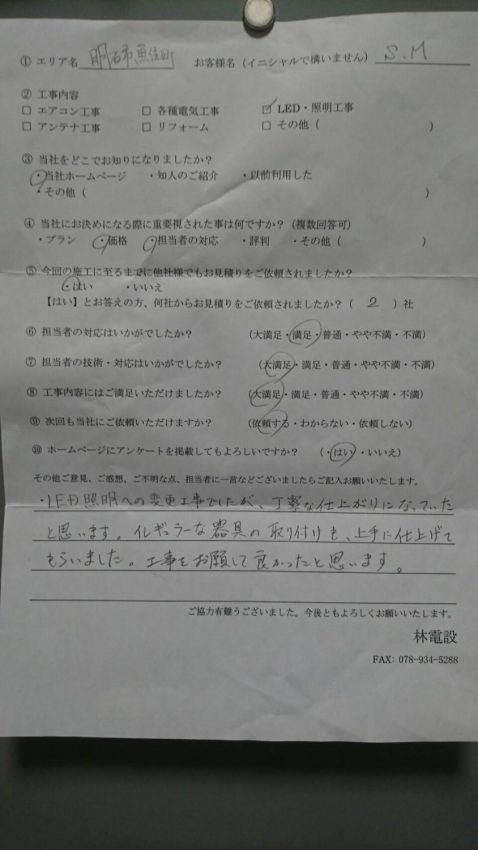 ① エリア名 明石市魚住町 お客様名（イニシャルで構いません） S.M
② 工事内容
□ エアコン工事 □ 各種電気工事 ☑ LED・照明工事
□ アンテナ工事 □ リフォーム □ その他（ ）
③ 当社をどこでお知りになりましたか？
・当社ホームページ ・知人のご紹介 ・以前利用した
・その他（ ）
④ 当社にお決めになる際に重要視された事は何ですか？（複数回答可）
・プラン ・価格 ・担当者の対応 ・評判 ・その他（ ）
⑤ 今回の施工に至るまでに他社様でもお見積りをご依頼されましたか？
・はい ・いいえ
【はい】とお答えの方、何社からお見積りをご依頼されましたか？（ 2 ）社
⑥ 担当者の対応はいかがでしたか？ （大満足・満足・普通・やや不満・不満）
⑦ 担当者の技術・対応はいかがでしたか？ （大満足・満足・普通・やや不満・不満）
⑧ 工事内容にはご満足いただけましたか？ （大満足・満足・普通・やや不満・不満）
⑨ 次回も当社にご依頼いただけますか？ （依頼する・わからない・依頼しない）
⑩ ホームページにアンケートを掲載してもよろしいですか？ （・はい・いいえ）
その他ご意見、ご感想、ご不明な点、担当者に一言などございましたらご記入お願いします。
・LED照明への変更工事でしたが、丁寧な仕上がりになっていた
と思います。イレギュラーな器具の取り付けも、上手に仕上げて
もらいました。工事をお願して良かったと思います。
ご協力有難うございました。今後ともよろしくお願いいたします。
林電設
FAX: 078-934-5288